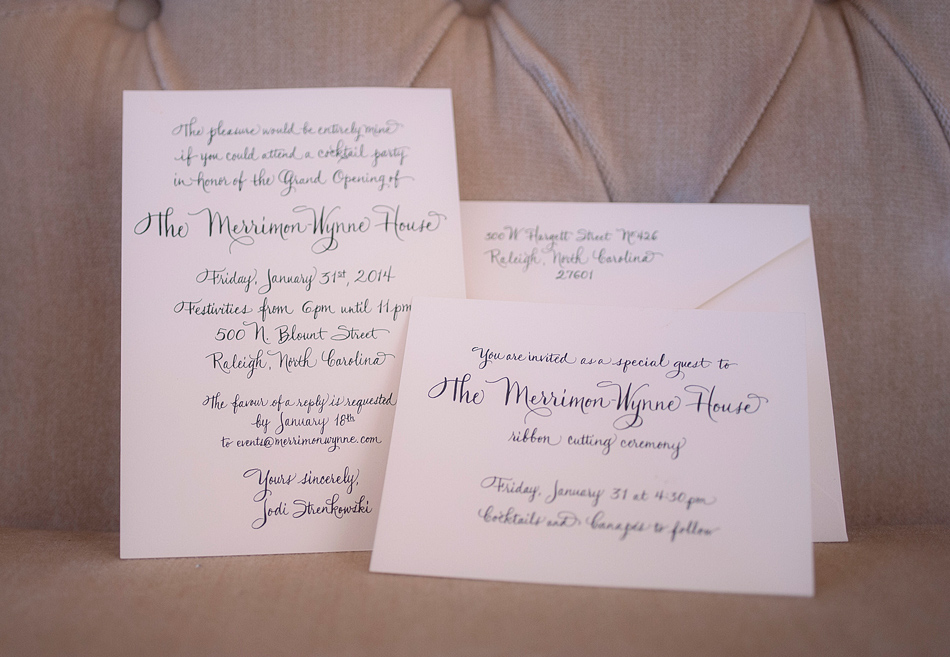 The pleasure would be entirely mine
if you could attend a cocktail party
in honor of the Grand Opening of
The Merrimon-Wynne House
Friday, January 31st, 2014
Festivities from 6pm until 11pm
500 N. Blount Street
Raleigh, North Carolina
The favour of a reply is requested
by January 18th
to events@merrimonwynne.com
Yours sincerely,
Jodi Strenkowski
500 W Hargett Street No 426
Raleigh, North Carolina
27601
You are invited as a special guest to
The Merrimon-Wynne House
ribbon cutting ceremony
Friday, January 31 at 4:30pm
Cocktails and Canapés to follow